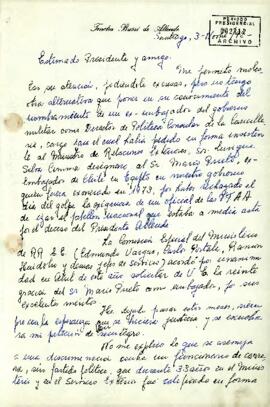 Tencha Bussi de Allende
PERIODO
PRESIDENCIAL
ARCHIVO
Santiago, 3-
Estimado Presidente y amigo:
Me permito moles
tar su atención, pidiéndole excusas, pero no tengo
otra alternativa que poner en su conocimiento del
nombramiento de un ex-embajador del gobierno
militar como Director de Política Consular de la Cancille
ría, cargo para el cual había pedido en forma insisten
te al Ministro de Relaciones Exteriores, Sr. Enrique
Silva Cimma designara al Sr Mario Prieto, ex-
Embajador de Chile en Egipto en nuestro gobierno
quien fuera exonerado en 1973, por haber rechazado el
día del golpe la exigencia de un oficial de la
de izar el pabellón nacional que estaba a media asta
por el deceso del Presidente Allende
La Comisión Especial del Ministerio
de RR EE (Edmundo Vargas, Carlos Portales, Ramón
Huidobro y demás jefes de servicio) acordó por unanimi
dad en de este año solicitar de V. E. la reinte
gración del Sr Mario Prieto como embajador, por sus
excelentes méritos.
Han dejado pasar estos meses, siem
pre con la esperanza que se hiciera justicia y se escuchara
mi petición de reintegro.
No me explico lo que se asemeja
a una discriminación contra un funcionario de carre
ra, sin partido político, que durante 33 años en el Minis
terio y en el Servicio Exterior fue calificado en forma